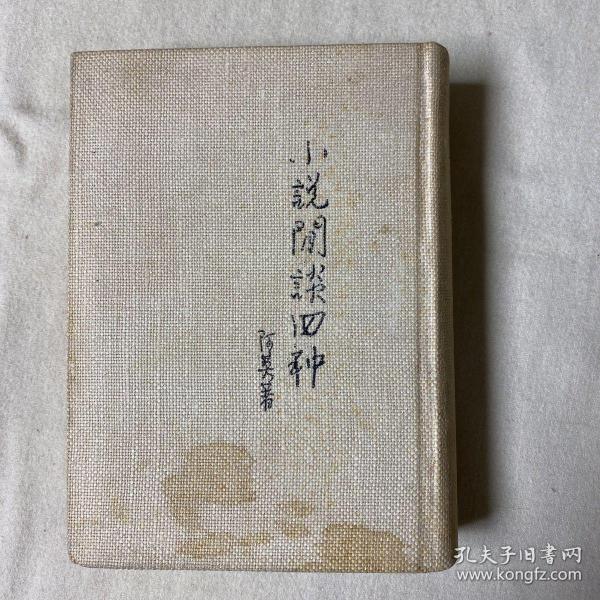 小説閒談四种
阿英著
孔夫子旧書网
www.kongfz.com